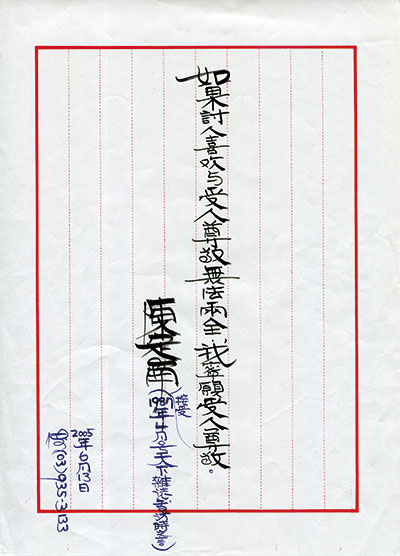 如果討人喜欢与受人尊敬無法兩全，我寧願受人尊敬。
陳定南
(1987年4月接受天下雜誌專訪之言)
2005年6月13日
(03)935-3133